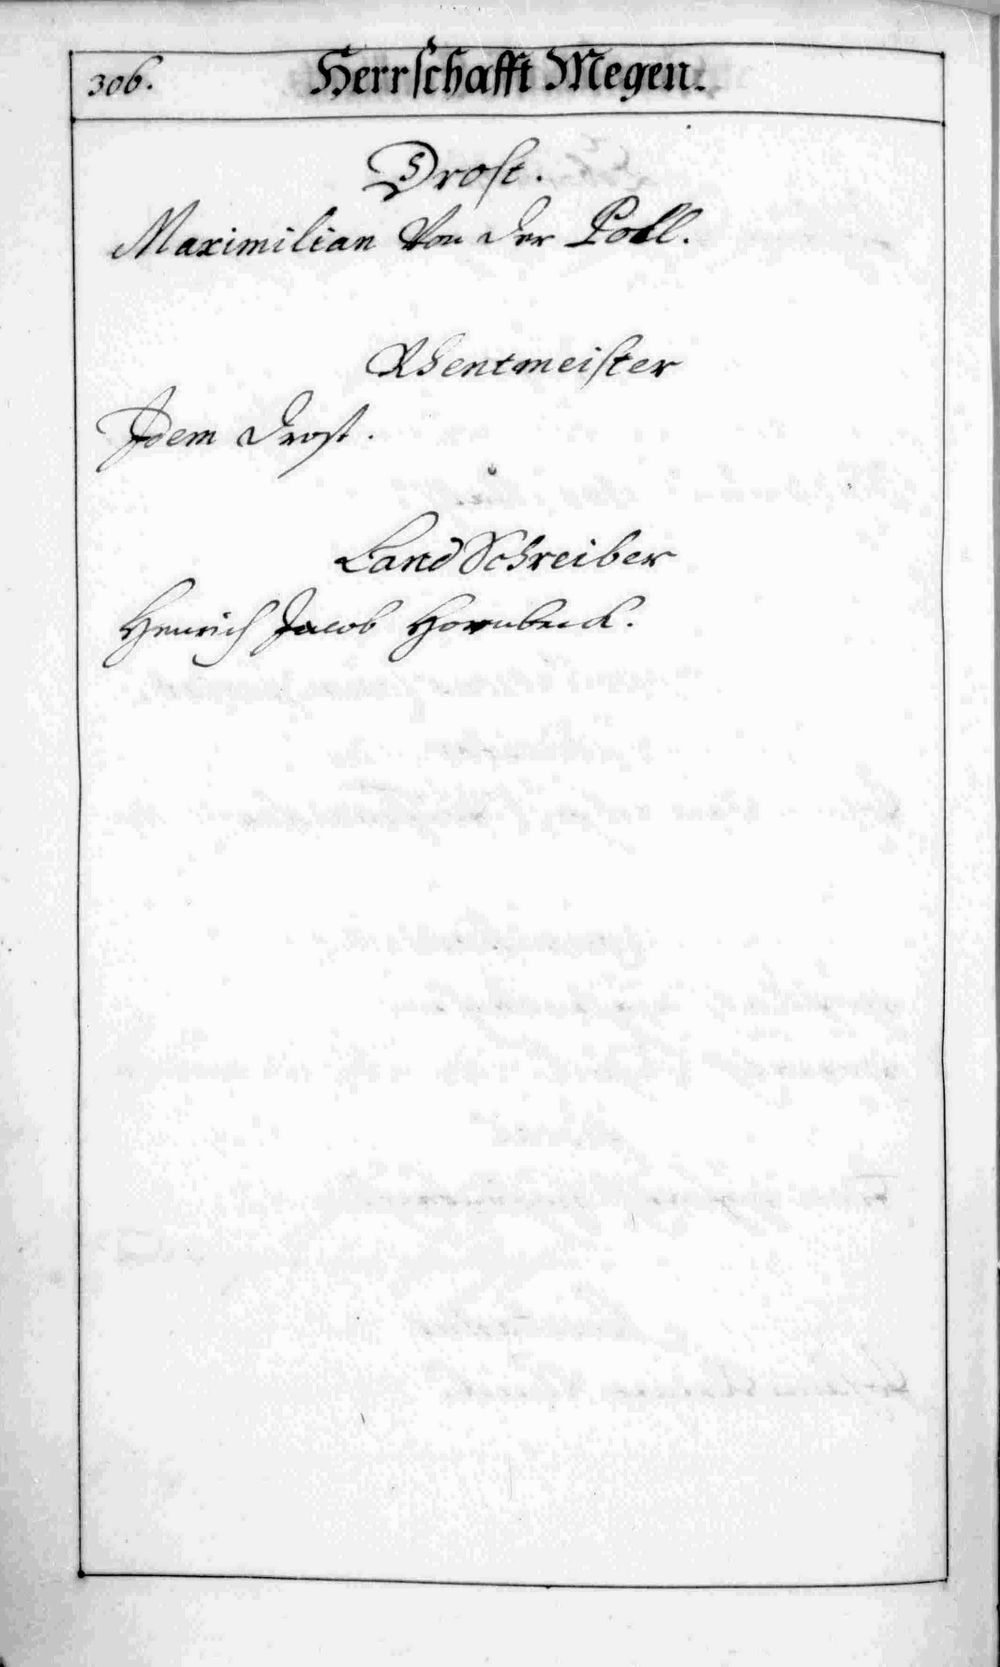 306.
Herrschafft Megen.
Drost.
Maximilian Von der Poll.
Rhentmeister
Idem Drost.
Land Schreiber
Henrich Jacob Hornbeck.